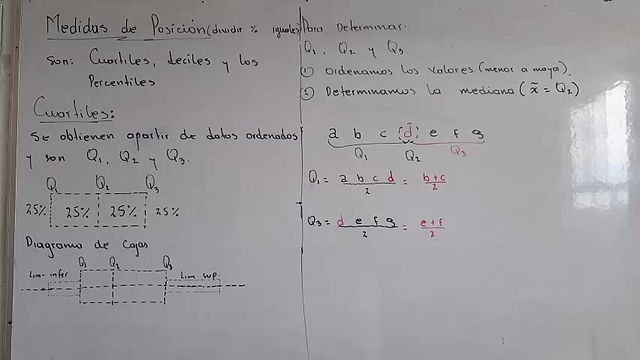 Medidas de Posición (dividir % iguales)
son: Cuartiles, deciles y los
Percentiles
Cuartiles:
Se obtienen apartir de datos ordenados
y son Q₁, Q₂ y Q₃.
Q₁ Q₂ Q₃
25% 25% 25% 25%
Diagrama de Cajas
Lim-infer Q₁ Q₂ Q₃ Lim sup.
Para Determinar.
Q₁, Q₂ y Q₃
① Ordenamos los valores (menor a mayor).
② Determinamos la mediana (x̃ = Q₂)
a b c (d) e f g
Q₁ Q₂ Q₃
Q₁ = a b c d / 2 = b+c / 2
Q₃ = d e f g / 2 = e+f / 2